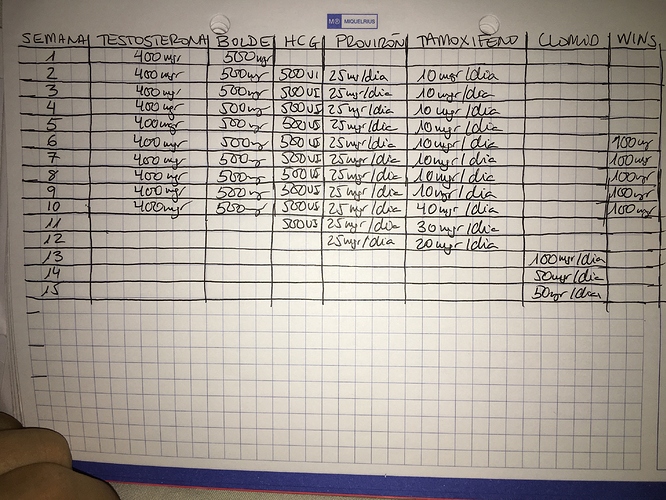 M MIQUELRIUS
SEMANA TESTOSTERONA BOLDE HCG PROVIRÓN TAMOXIFENO CLOMID WINS
1 400mgr 500mgr
2 400mgr 500mgr 500UI 25mgr/dia 10mgr/dia
3 400mgr 500mgr 500UI 25mgr/dia 10mgr/dia
4 400mgr 500mgr 500UI 25mgr/dia 10mgr/dia
5 400mgr 500mgr 500UI 25mgr/dia 10mgr/dia
6 400mgr 500mgr 500UI 25mgr/dia 10mgr/dia 100mg
7 400mgr 500mgr 500UI 25mgr/dia 10mgr/dia 100mg
8 400mgr 500mgr 500UI 25mgr/dia 10mgr/dia 100mg
9 400mgr 500mgr 500UI 25mgr/dia 10mgr/dia 100mg
10 400mgr 500mgr 500UI 25mgr/dia 40mgr/dia 100mg
11 500UI 25mgr/dia 30mgr/dia
12 25mgr/dia 20mgr/dia
13 100mgr/dia
14 50mgr/dia
15 50mgr/dia